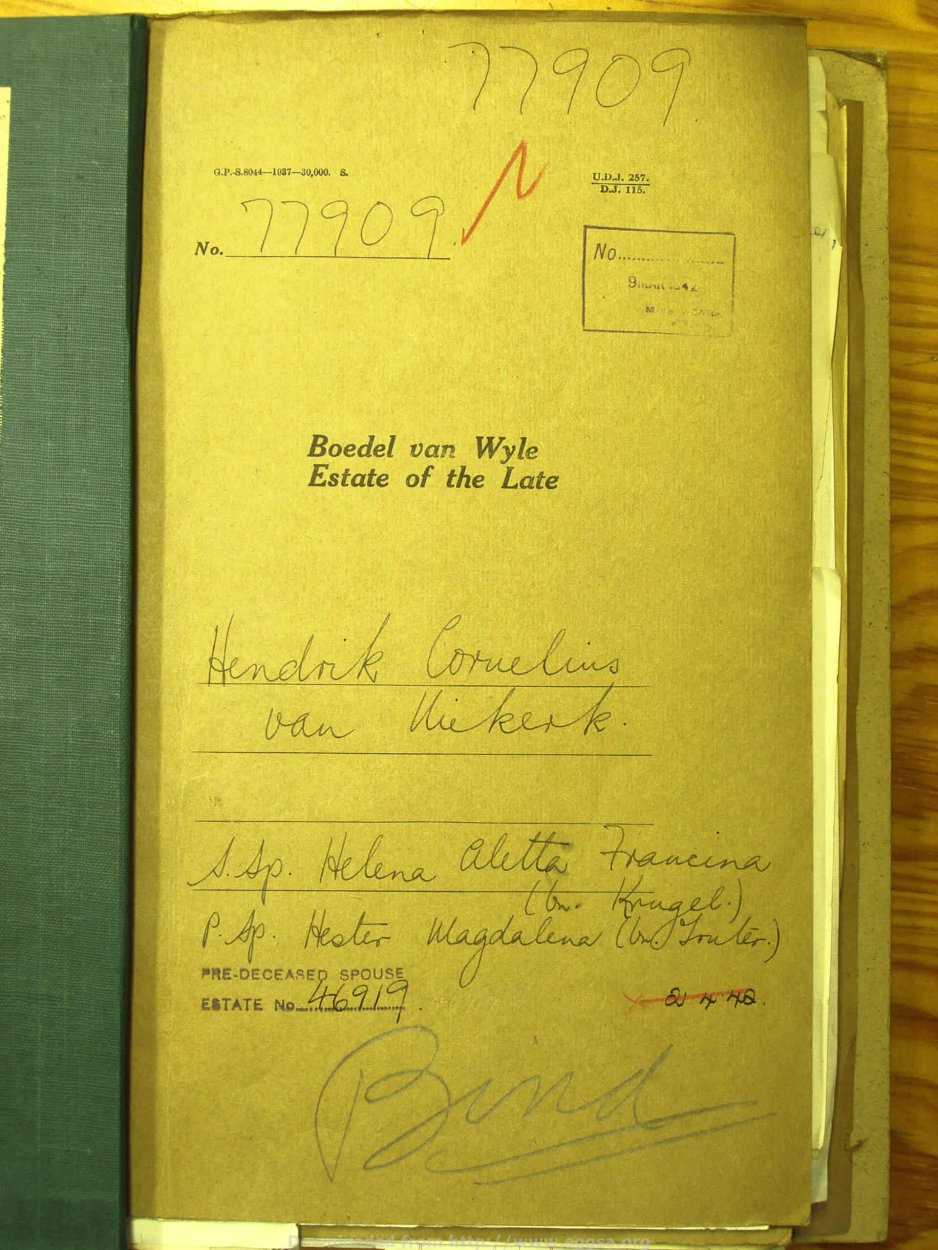 77909
G.P.-S.8044—1937—30,000. S.
U.D.J. 257.
D.J. 115.
No. 77909.
No.
9
Boedel van Wyle
Estate of the Late
Hendrik Cornelius
van Niekerk.
S. Sp. Helena Aletta Francina
(bn. Krugel.)
P. Sp. Hester Magdalena (bn. Souter.)
PRE-DECEASED SPOUSE
ESTATE No. 46919.
Bind
Downloaded from http://www.eggsa.org